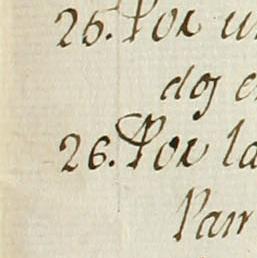 25. Por u
dos e
26. Por la
Parr